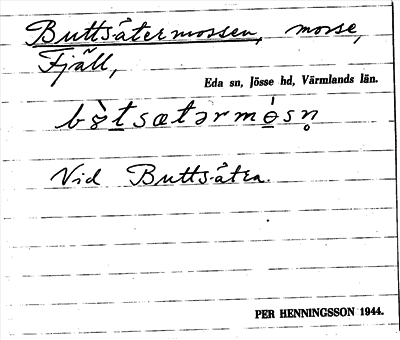 Buttsätermossen, mosse,
Fjäll,
Eda sn, Jösse hd, Värmlands län.
Vid Buttsätra.
PER HENNINGSSON 1944.